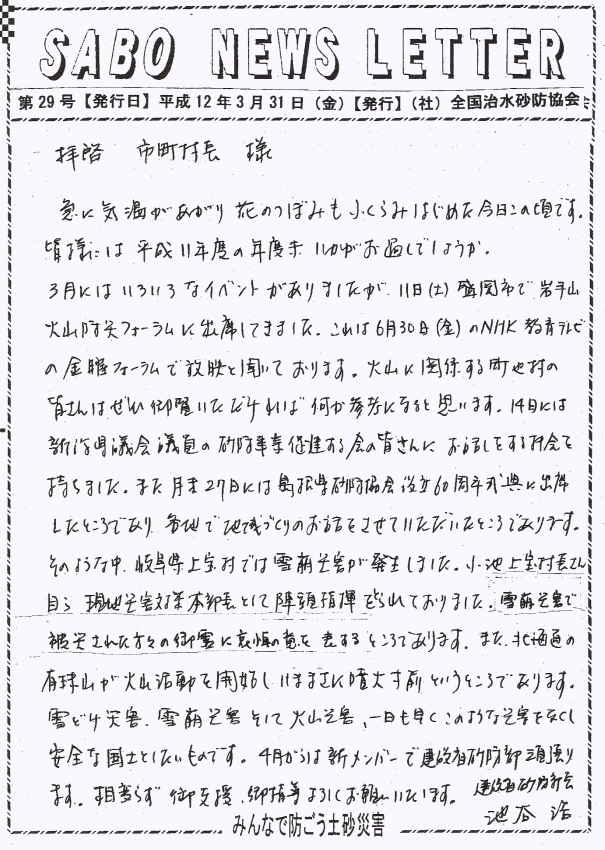 SABO NEWS LETTER
第29号【発行日】平成12年3月31日（金）【発行】（社）全国治水砂防協会
拝啓　市町村長　様
急に気温があがり 花のつぼみも ふくらみはじめた今日この頃です。
皆様には 平成11年度の年度末 いかがお過しでしょうか。
3月には いろいろなイベントがありましたが、11日(土)盛岡市で岩手山
火山防災フォーラムに出席してきました。これは6月30日(金)のNHK教育テレビ
の金曜フォーラムで放映と聞いております。火山に関係する町や村の
皆さんはぜひ御覧いただければ 何か参考になると思います。14日には
新潟県議会議員の砂防事業促進する会の皆さんに お話しをする機会を
持ちました。また月末27日には島根県砂防協会設立60周年式典に出席
したところであり、各地で地域づくりのお話をさせていただいたところであります。
そのような中、岐阜県上宝村では雪崩災害が発生しました。小池上宝村長さん
自ら 現地災害対策本部長として陣頭指揮をとられておりました。雪崩災害で
被災された方々の御霊に哀悼の意を表するところであります。また、北海道の
有珠山が火山活動を開始し いままさに噴火寸前というところであります。
雪どけ災害、雪崩災害 そして火山災害、一日も早くこのような災害をなくし
安全な国土としたいものです。4月からは新メンバーで建設省砂防部頑張り
ます。相変らず御支援、御指導よろしくお願いいたします。
建設省砂防部
池谷 浩
みんなで防ごう土砂災害